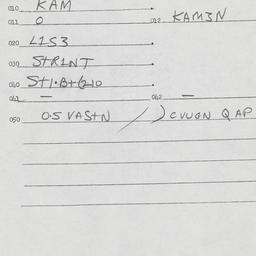 010 KAM
011 0 012 KAM3N
020 L1S3
030 StR1NT
040 St1·B+G10
041 — 042 —
050 0.5 VAStN / ) CVUGN QAP